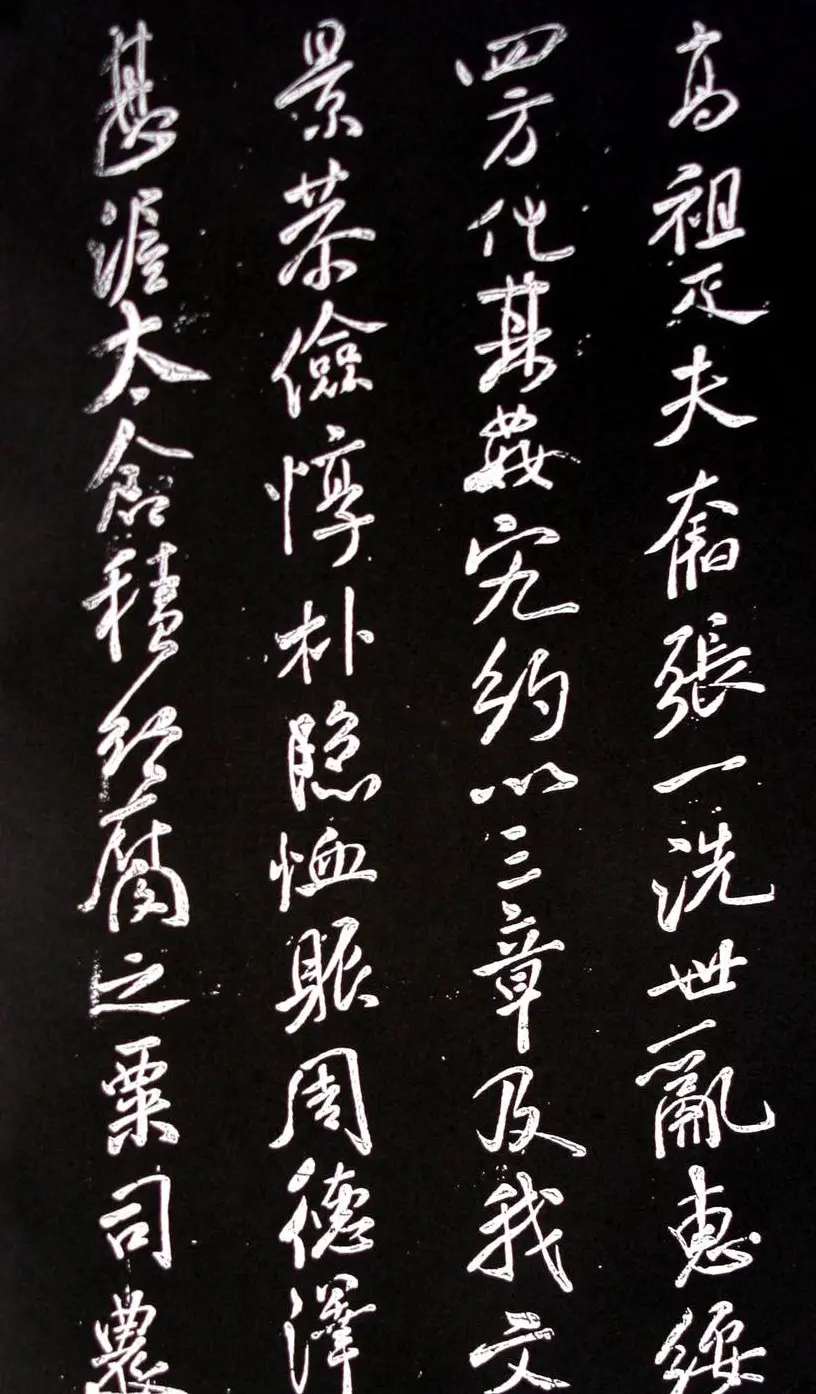 高祖疋夫奮張一洗世亂惠綏
四方化其姦宄約以三章及我文
景恭儉惇朴隱恤賑周德澤
甚渥太倉積紅腐之粟司農